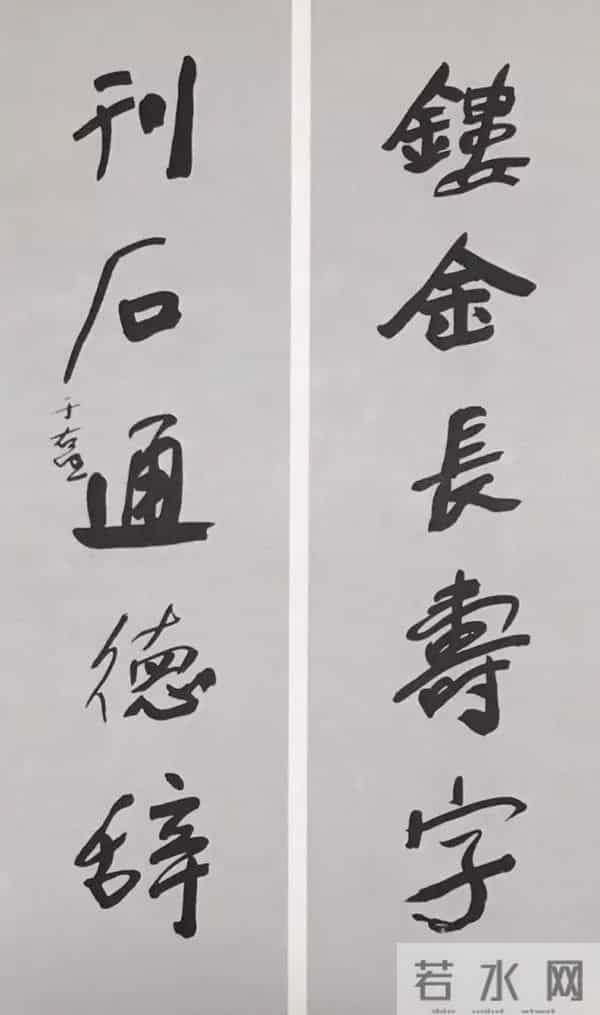 鏤金長壽字
刊石通德辞
于右任
若水网